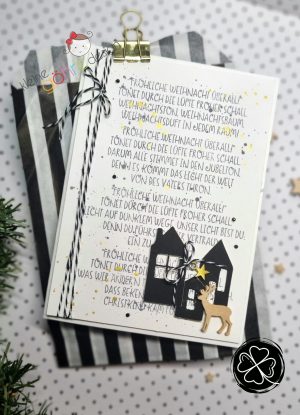 kleine göhr design
FRÖHLICHE WEIHNACHT ÜBERALL!
TÖNET DURCH DIE LÜFTE FROHER SCHALL.
WEIHNACHTSTON, WEIHNACHTSBAUM,
WEIHNACHTSDUFT IN JEDEM RAUM!
FRÖHLICHE WEIHNACHT ÜBERALL!
TÖNET DURCH DIE LÜFTE FROHER SCHALL.
DARUM ALLE STIMMET IN DEN JUBELTON,
DENN ES KOMMT DAS LICHT DER WELT
VON DES VATERS THRON.
FRÖHLICHE WEIHNACHT ÜBERALL!
TÖNET DURCH DIE LÜFTE FROHER SCHALL.
LICHT AUF DUNKLEM WEGE, UNSER LICHT BIST DU,
DENN DU FÜHRST, DIE DIR VERTRAU'N
EIN ZU
FRÖHLICHE W
TÖNET DURCH DI
WAS WIR ANDERN
DASS BEKEN
CHRISTKIND